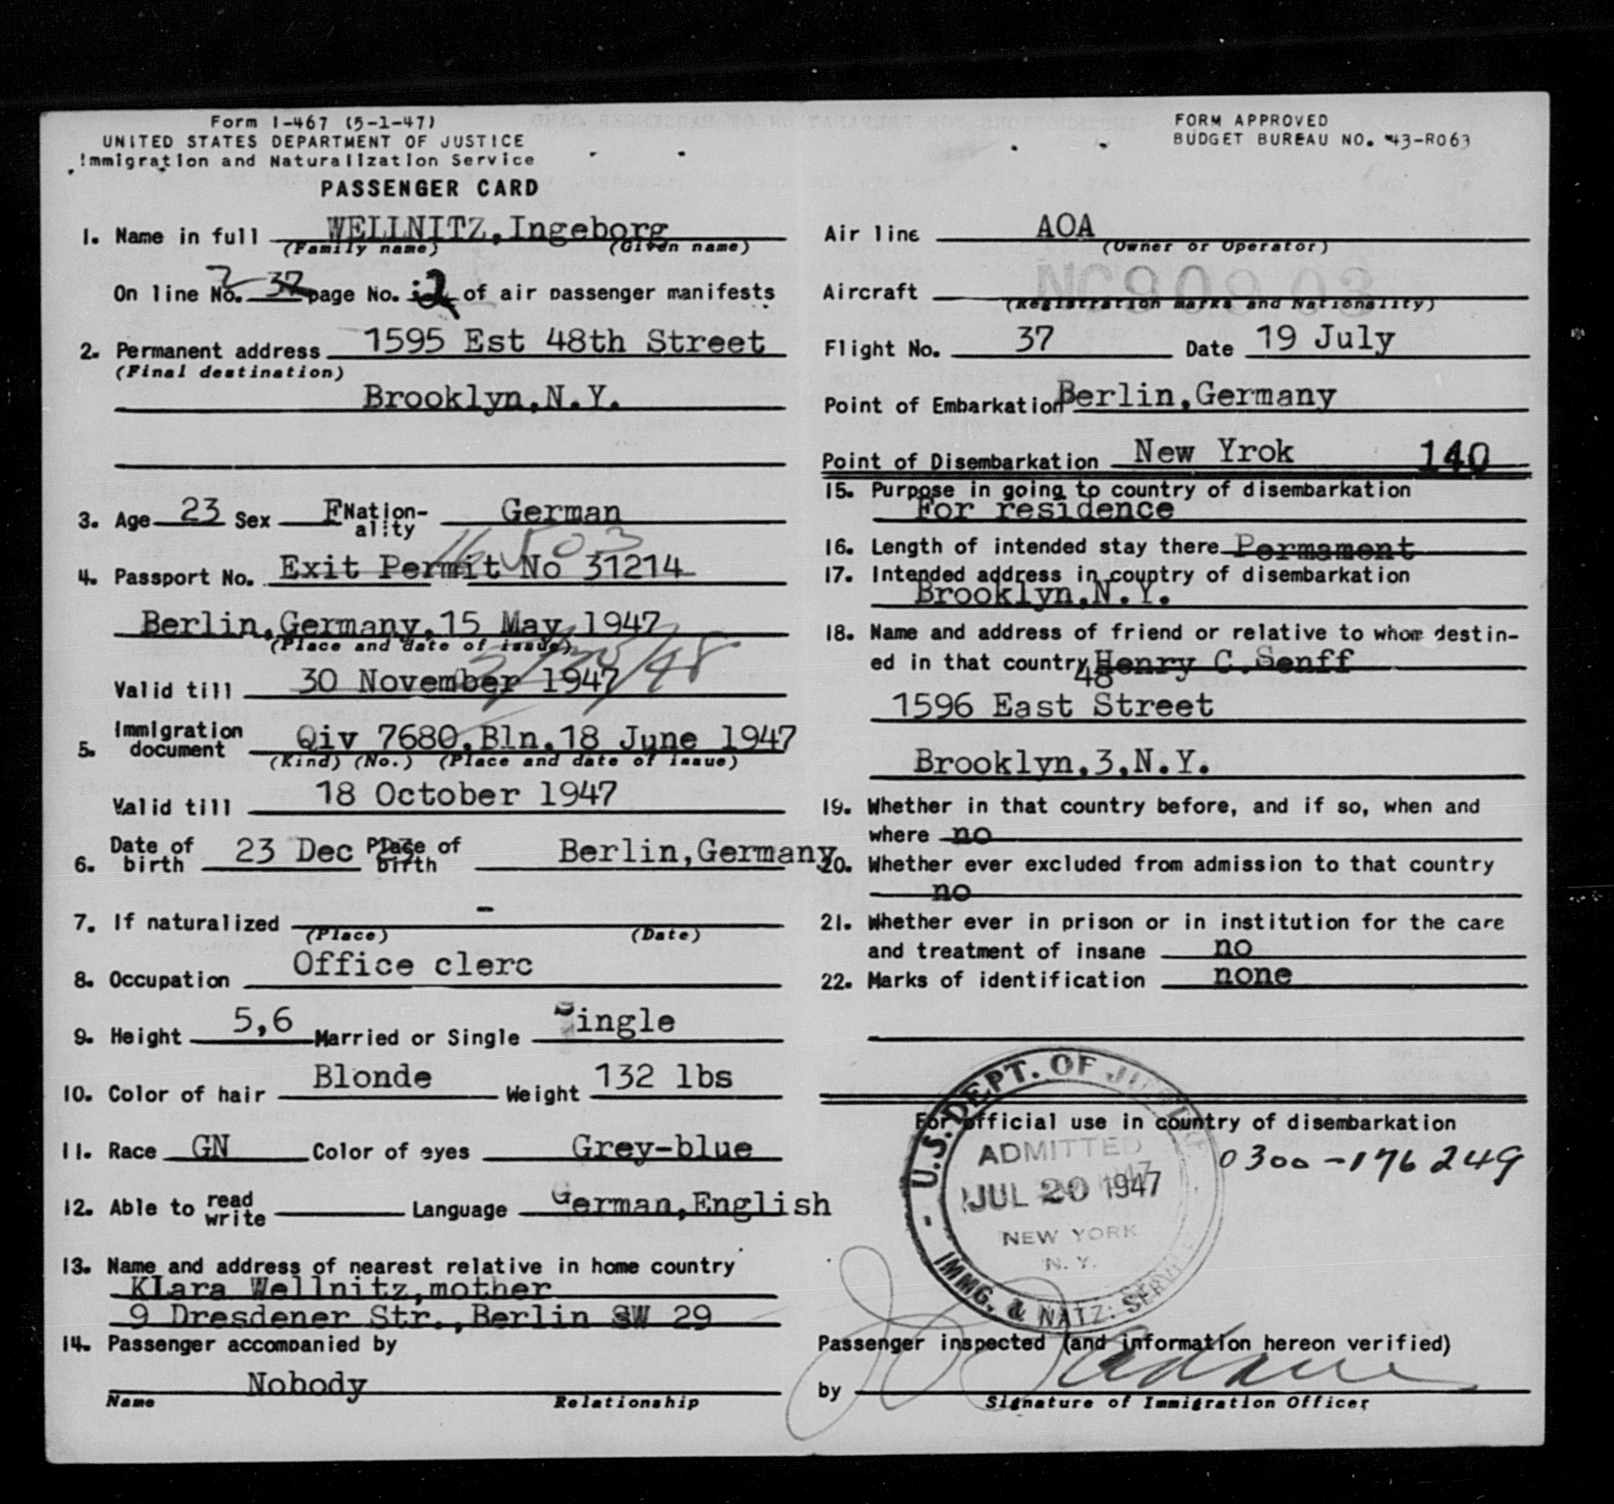 Form I-467 (5-1-47)
UNITED STATES DEPARTMENT OF JUSTICE
Immigration and Naturalization Service
PASSENGER CARD
1. Name in full WELLNITZ,Ingeborg
(Family name) (Given name)
On line No. 37 page No. 2 of air passenger manifests
2. Permanent address 1595 Est 48th Street
(Final destination)
Brooklyn,N.Y.
3. Age 23 Sex F Nation-ality German
4. Passport No. Exit Permit No 31214
Berlin,Germany,15 May 1947
(Place and date of issue)
Valid till 30 November 1947
5. Immigration document Qiv 7680,Bln,18 June 1947
(Kind) (No.) (Place and date of issue)
Valid till 18 October 1947
6. Date of birth 23 Dec Place of birth Berlin,Germany
7. If naturalized -
(Place) (Date)
8. Occupation Office clerc
9. Height 5,6 Married or Single Single
10. Color of hair Blonde Weight 132 lbs
11. Race GN Color of eyes Grey-blue
12. Able to read write Language German,English
13. Name and address of nearest relative in home country
Klara Wellnitz,mother
9 Dresdener Str.,Berlin SW 29
14. Passenger accompanied by
Nobody
Name Relationship
FORM APPROVED
BUDGET BUREAU NO. 43-R063
Air line AOA
(Owner or Operator)
Aircraft
(Registration marks and Nationality)
Flight No. 37 Date 19 July
Point of Embarkation Berlin,Germany
Point of Disembarkation New Yrok 140
15. Purpose in going to country of disembarkation
For residence
16. Length of intended stay there Permament
17. Intended address in country of disembarkation
Brooklyn,N.Y.
18. Name and address of friend or relative to whom destin-
ed in that country Henry C.Senff
48
1596 East Street
Brooklyn,3,N.Y.
19. Whether in that country before, and if so, when and
where no
20. Whether ever excluded from admission to that country
no
21. Whether ever in prison or in institution for the care
and treatment of insane no
22. Marks of identification none
For official use in country of disembarkation
0300-176249
U.S. DEPT. OF JUSTICE
ADMITTED
JUL 20 1947
NEW YORK
N. Y.
IMMG. & NATZ. SERVICE
Passenger inspected (and information hereon verified)
by
Signature of Immigration Officer